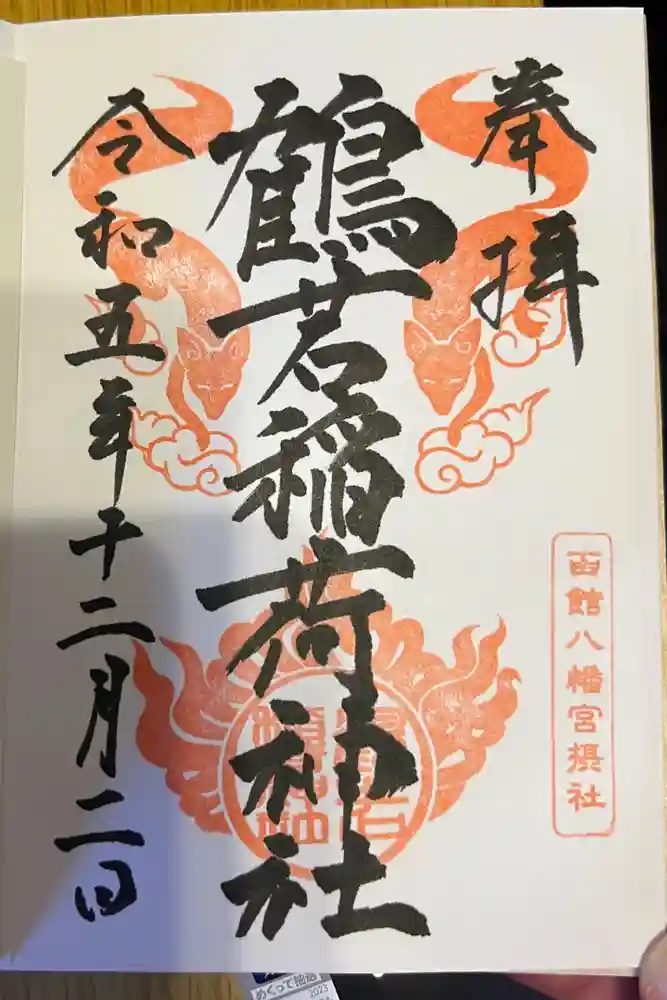 奉拝
鶴若稲荷神社
令和五年十二月二日
函館八幡宮摂社
めくって
2023